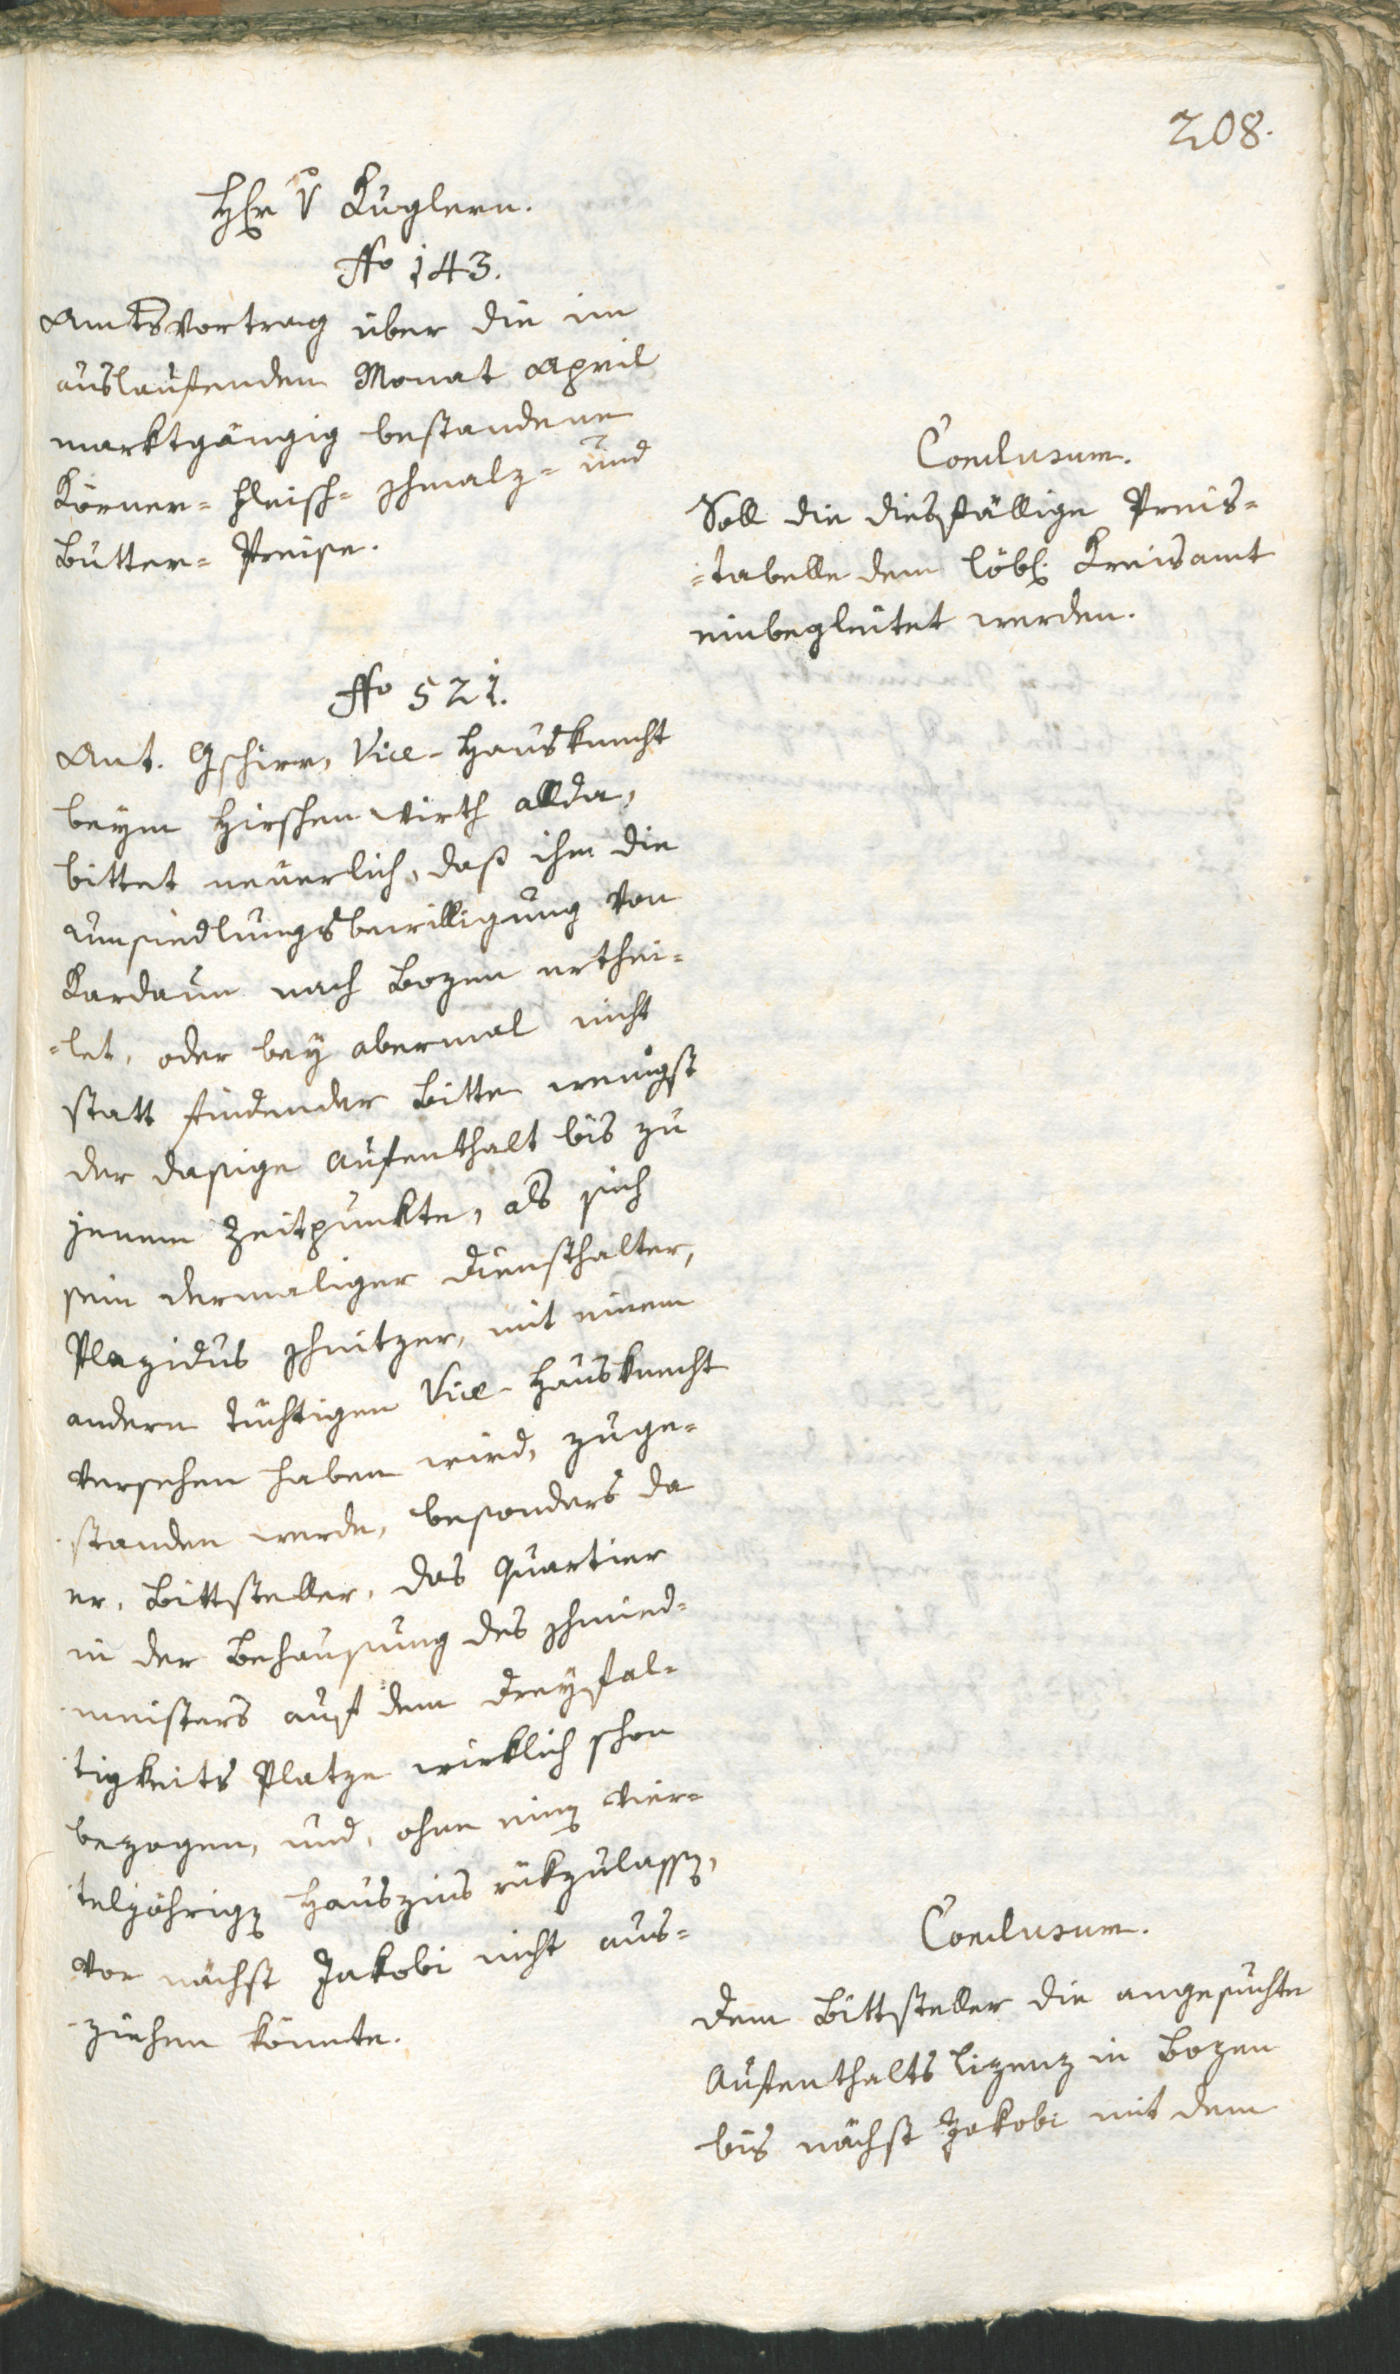 208.
Hr v Kuglern.
No 143.
Amtsvortrag über die im
auslaufenden Monat April
marktgängig bestandene
Körner- Fleisch- Schmalz- und
Butter- Preise.
Conclusum.
Soll die diesfällige Preis-
-tabelle dem löbl. Kreisamt
einbegleitet werden.
No 521.
Ant. Gschirr, Vice-Hausknecht
beym Hirschenwirth allda,
bittet neuerlich, daß ihm die
Umsiedlungsbewilligung von
Kardaun nach Bozen erthei-
-let, oder bey abermal nicht
statt findender Bitte wenigst
der dasige Aufenthalt bis zu
jenem Zeitpunkte, als sich
sein dermaliger Diensthalter,
Plazidus Schnitzer, mit einem
andern tüchtigen Vice-Hausknecht
versehen haben wird, zuge-
standen werde, besonders da
er, Bittsteller, das Quartier
in der Behausung des Schmied-
meisters auf dem Dreyfal-
tigkeits Platze wirklich schon
bezogen, und, ohne einen vier-
teljährigen Hauszins rükzulassen,
vor nächst Jakobi nicht aus-
ziehen könnte.
Conclusum.
Dem Bittsteller die angesuchte
Aufenthalts lizenz in Bozen
bis nächst Jakobi mit dem